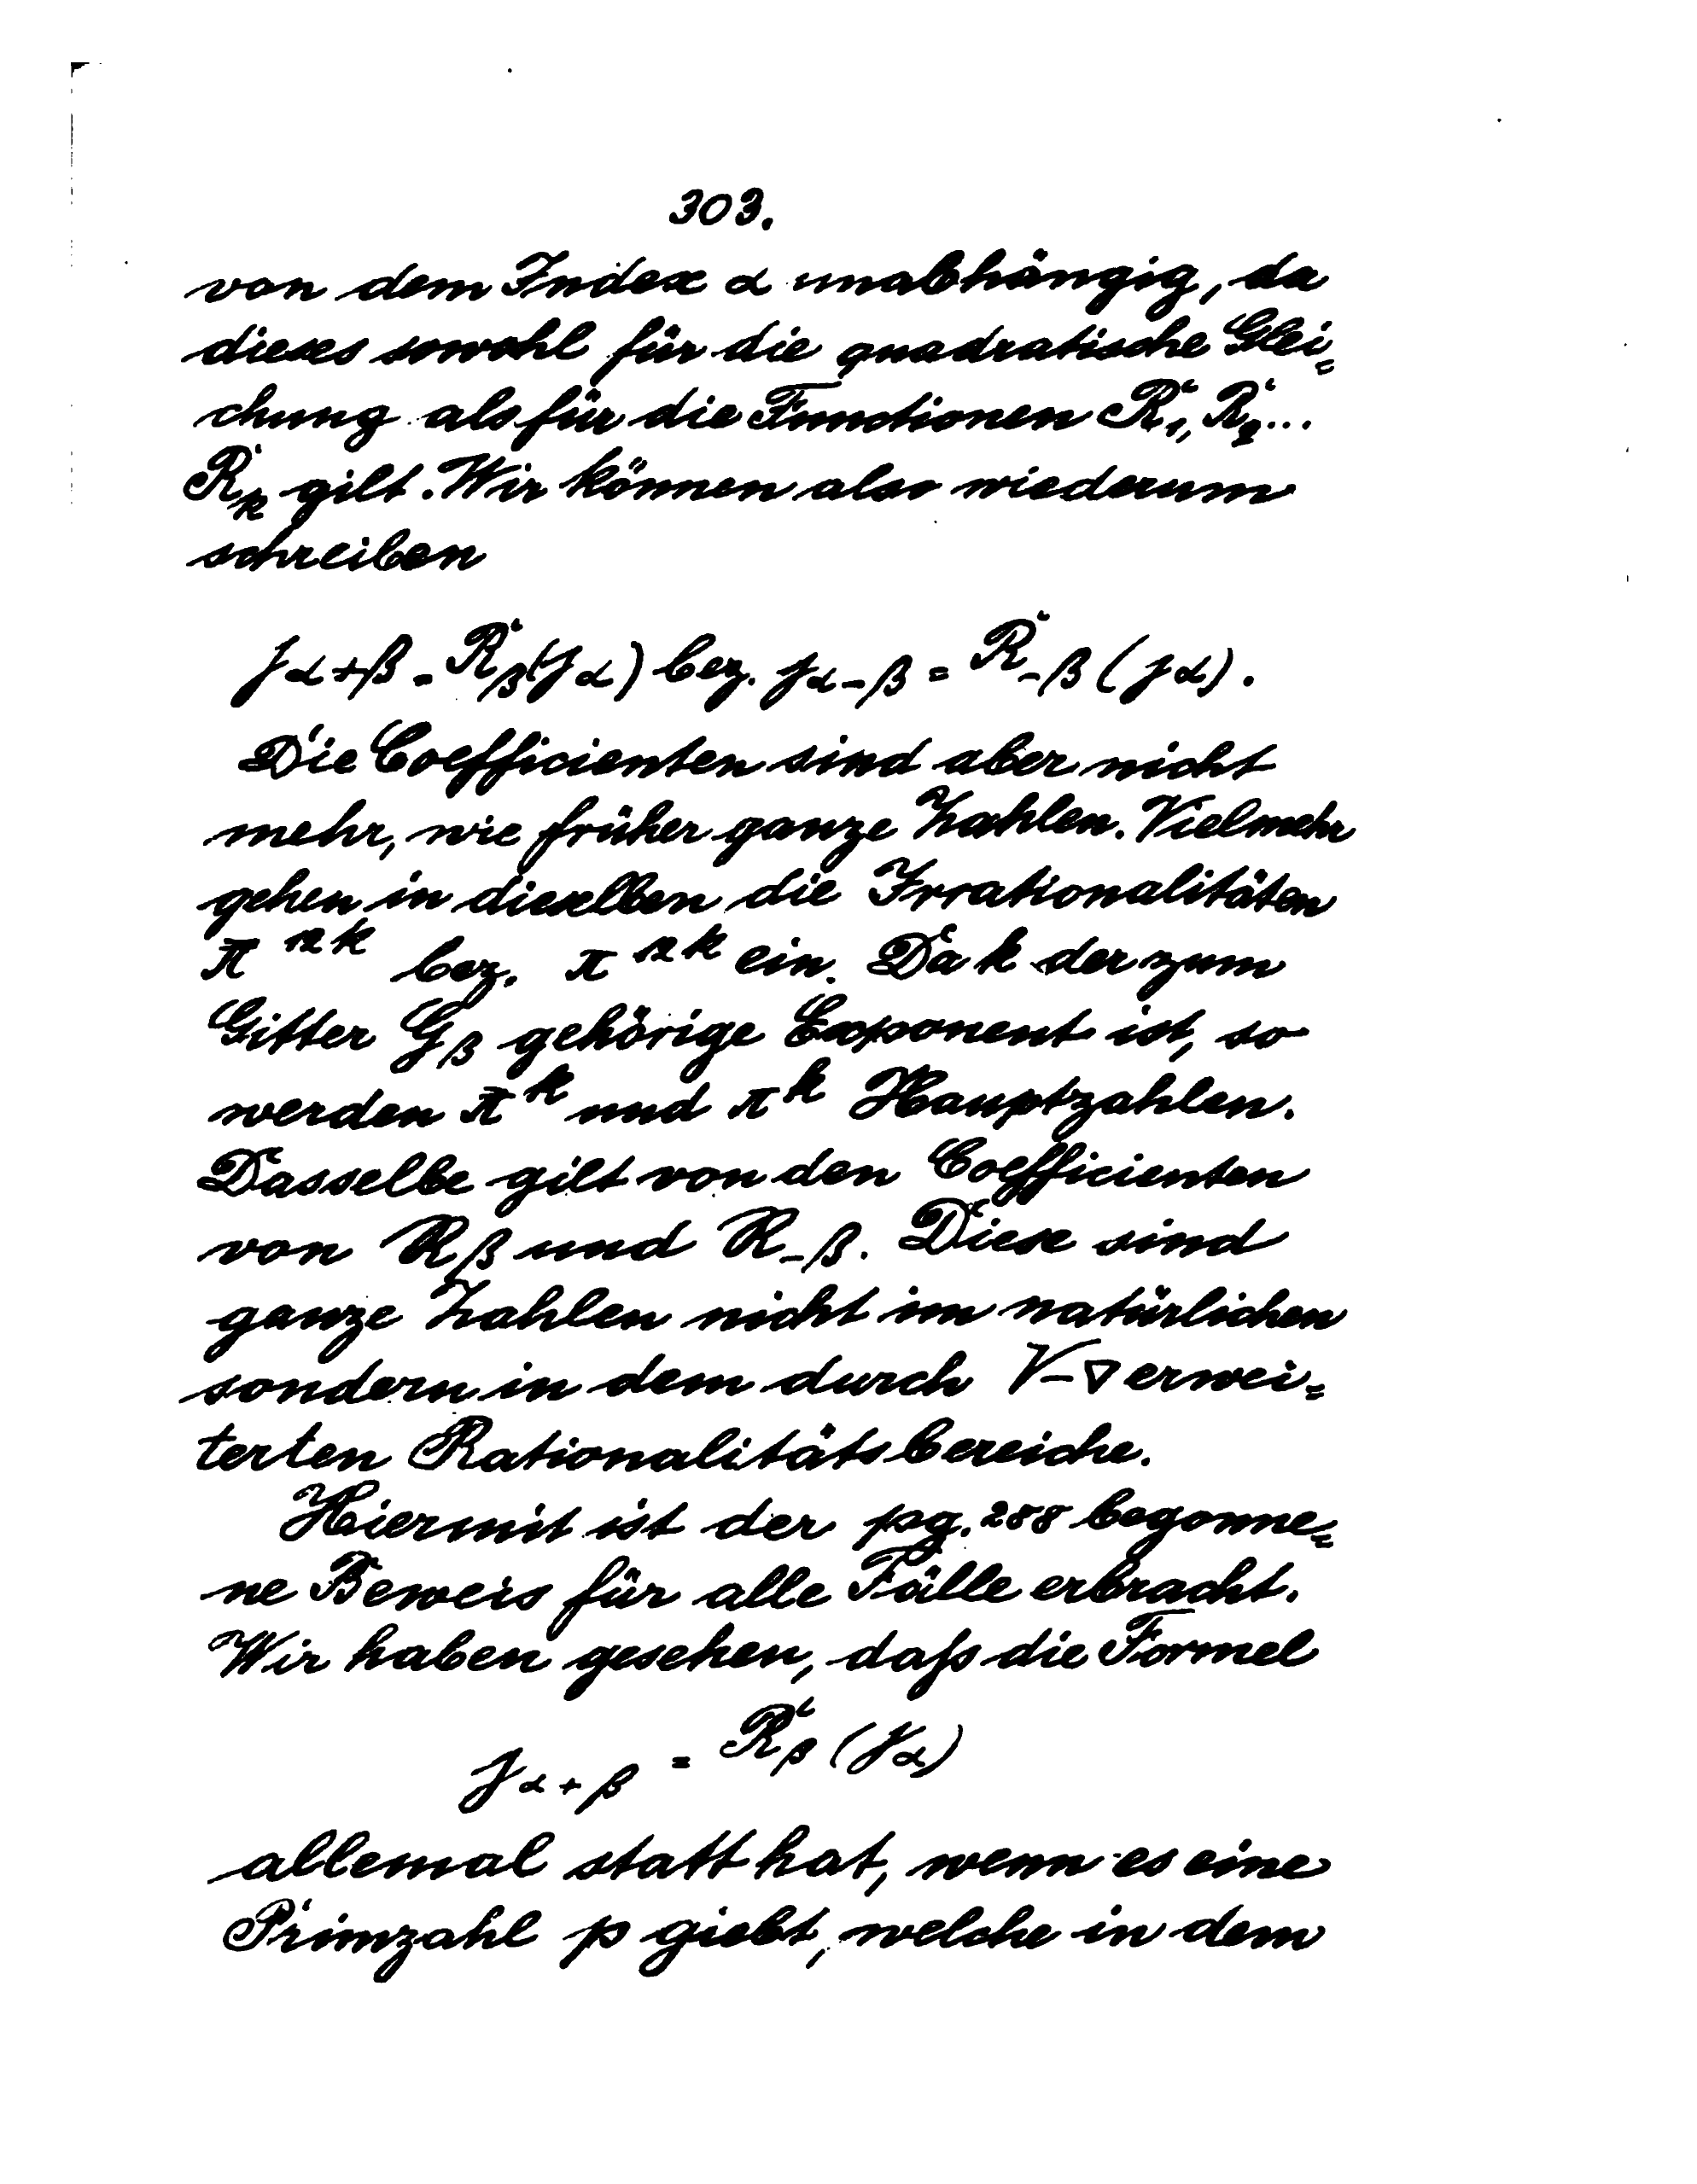 303.
von dem Index α unabhängig, da
dieses sowohl für die quadratische Glei=
chung als für die Functionen R₁, R₂...
Rₖ gilt. Wir können also wiederum
schreiben
jα+β = Rβ(jα) bez. jα-β = R-β(jα).
Die Coefficienten sind aber nicht
mehr, wie früher ganze Zahlen. Vielmehr
gehen in dieselben die Irrationalitäten
π̄ ⁿᵏ bez. π ⁿᵏ ein. Da k der zum
Gitter Gβ gehörige Exponent ist, so
werden π̄ᵏ und πᵏ Hauptzahlen.
Dasselbe gilt von den Coefficienten
von Rβ und R-β. Diese sind
ganze Zahlen nicht im natürlichen
sondern in dem durch √-∇ erwei=
terten Rationalitätsbereiche.
Hiermit ist der pg. 288 begonne=
ne Beweis für alle Fälle erbracht.
Wir haben gesehen, daß die Formel
jα+β = Rβ(jα)
allemal statt hat, wenn es eine
Primzahl p giebt, welche in dem